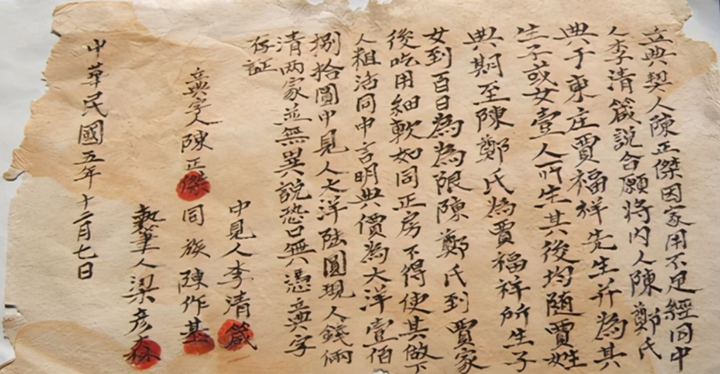 立典契人陳正傑因家用不足經同中
人李清箴說合願將內人陳鄭氏
典于東庄賈福祥先生并為其
生子或女壹人所生其後均隨賈姓
典期至陳鄭氏為賈福祥所生子
女到百日為為限陳鄭氏到賈家
後吃用細軟如同正房不得使其做下
人粗活同中言明典價為大洋壹伯
捌拾圓中見人大洋陸圓現人錢兩
清兩家並無異說恐口無憑立典字
存証
中見人李清箴
立典字人陳正傑 同族陳作基
執筆人梁彥森
中華民國五年十二月七日